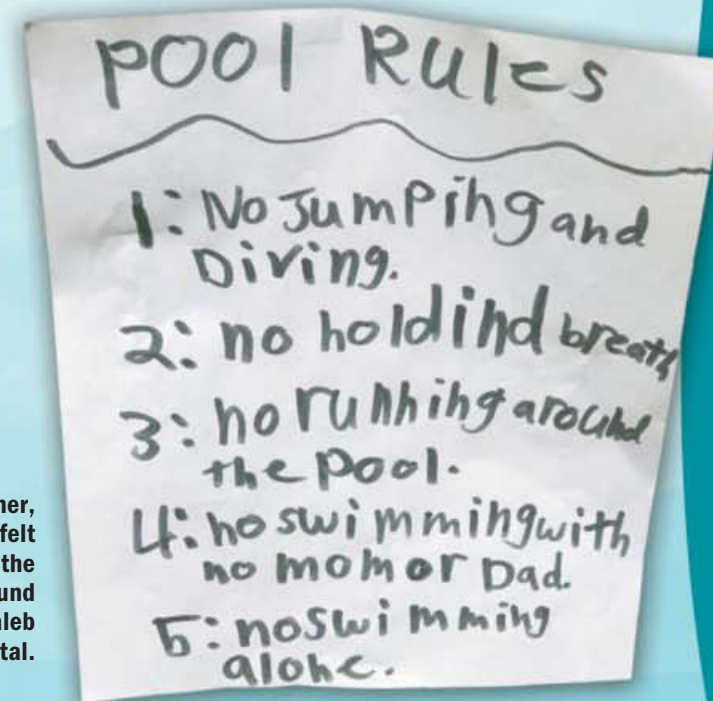 POOl RUles
1: No JumPing and
Diving.
2: no holdind breath
3: no running around
the Pool.
4: no swimming with
no mom or Dad.
5: no swimming
alone.
ner,
felt
the
und
aleb
tal.